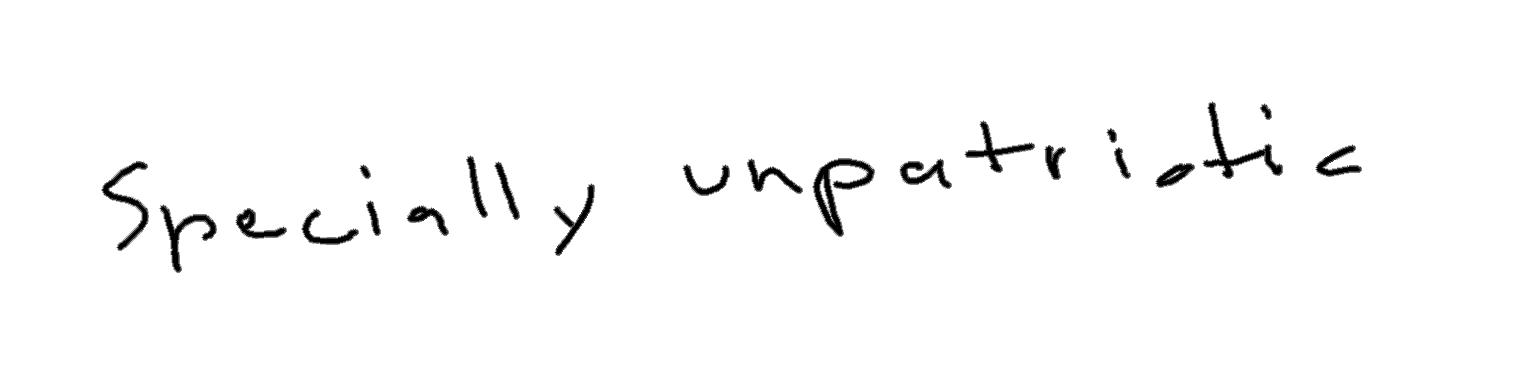 Specially unpatriotic